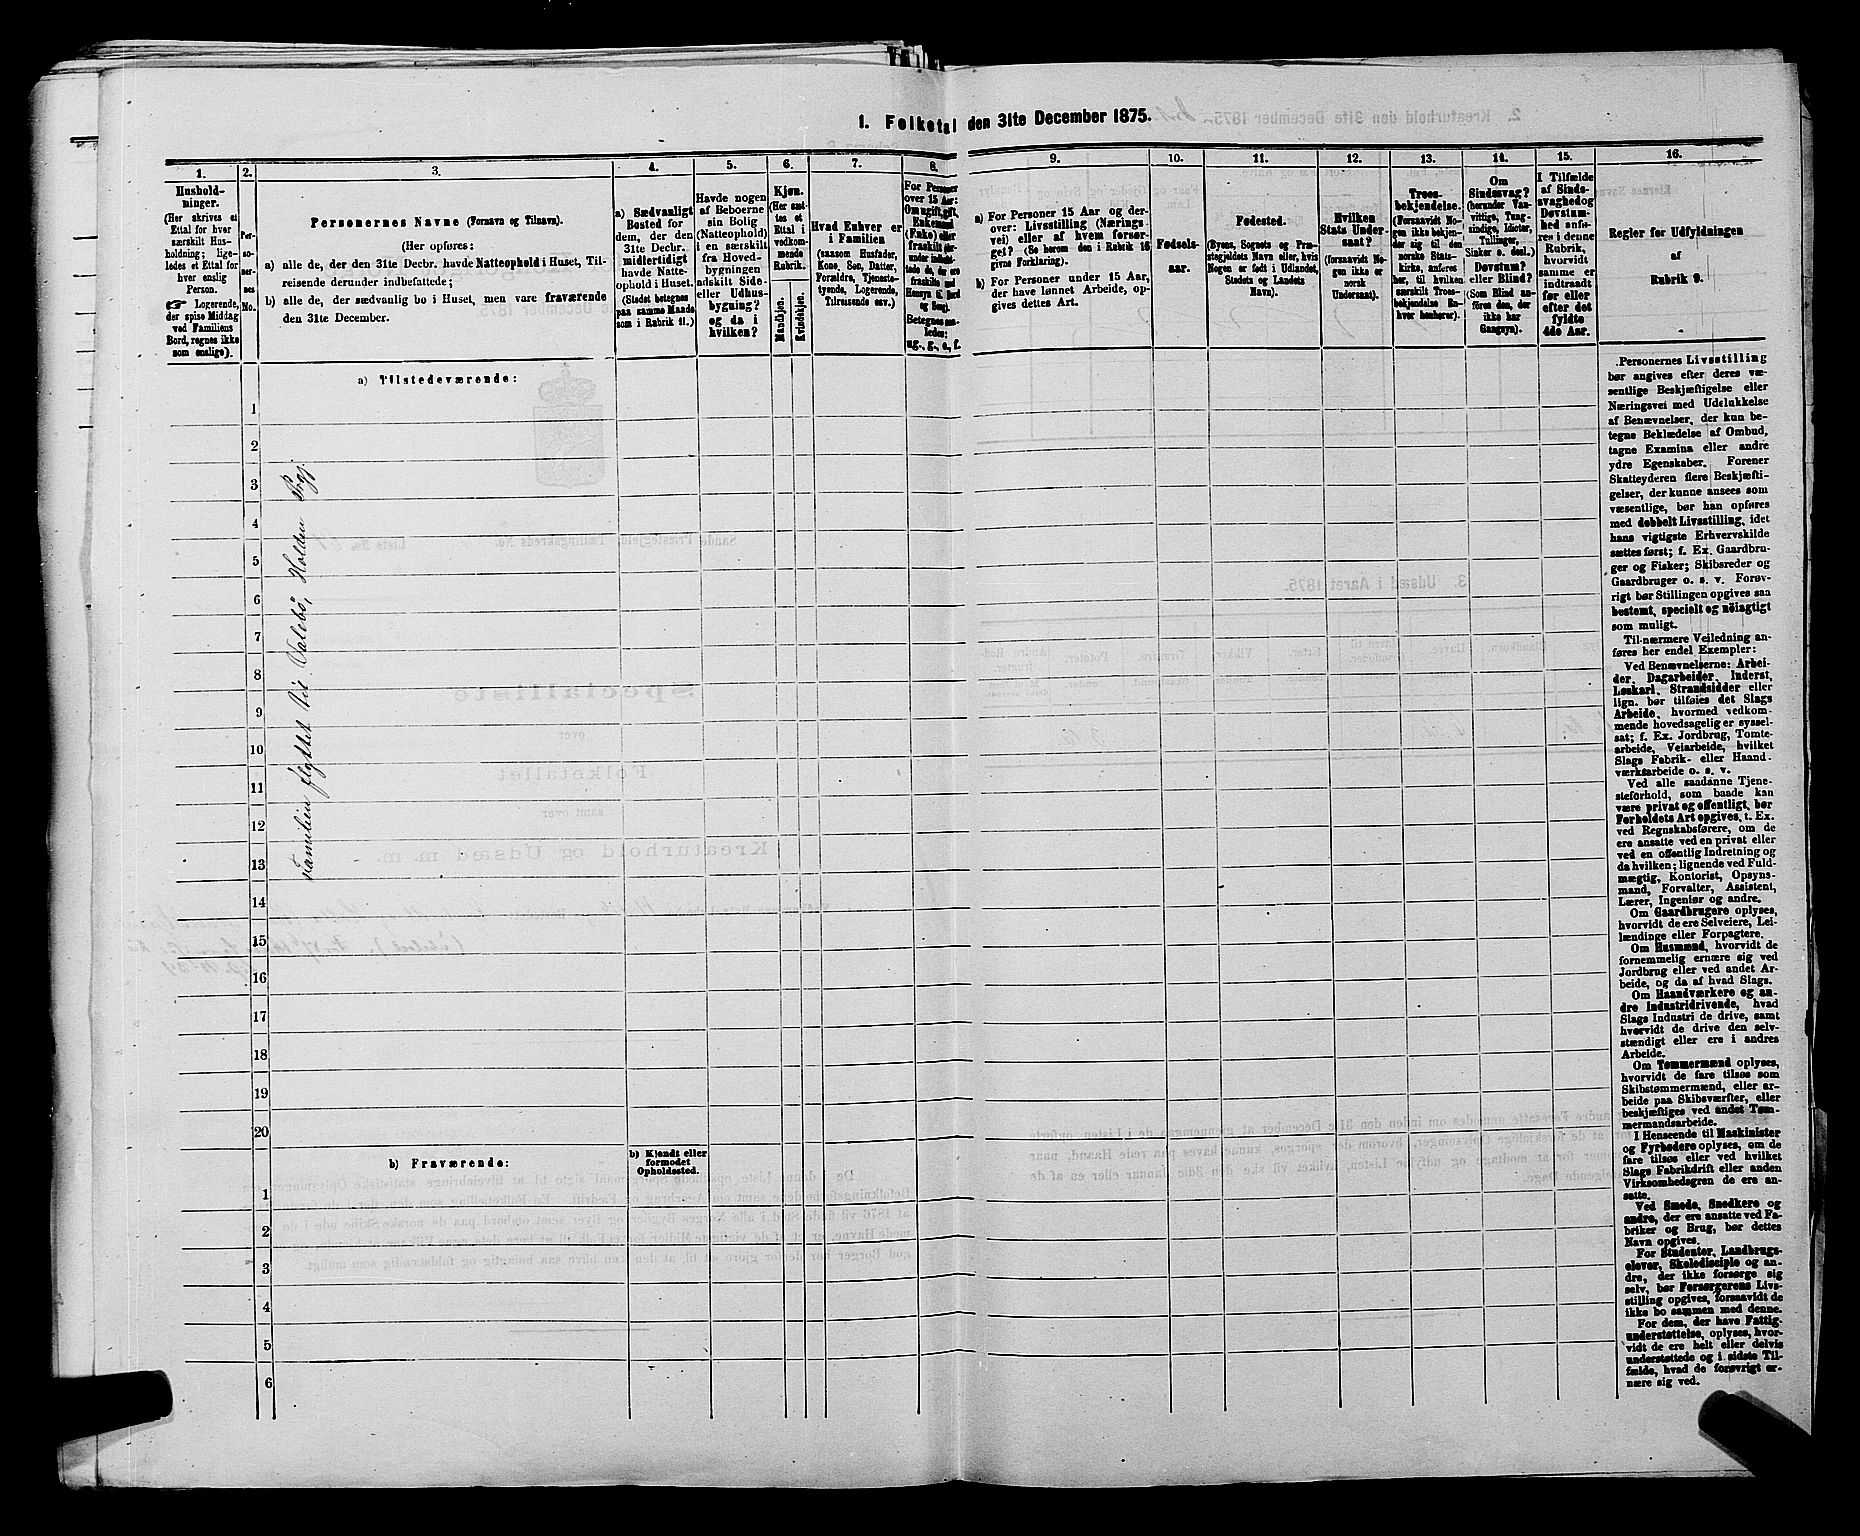 1. Folketal den 31te December 1875.
1.
Hushold-
ninger.
(Her skrives et
Ettal for hver
særskilt Hus-
holdning; lige-
ledes et Ettal for
hver enslig
Person.
☞ Logerende,
der spise Middag
ved Familiens
Bord, regnes ikke
som enslige).
2.
Per-
so-
ner-
nes
No.
3.
Personernes Navne (Fornavn og Tilnavn).
(Her opføres:
a) alle de, der den 31te Decbr. havde Natteophold i Huset, Til-
reisende derunder indbefattede;
b) alle de, der sædvanlig bo i Huset, men vare fraværende
den 31te December.
4.
a) Sædvanligt
Bosted for
dem, der den
31te Decbr.
midlertidigt
havde Natte-
ophold i Huset.
(Stedet betegnes
paa samme Maade
som i Rubrik 11.)
5.
Havde nogen
af Beboerne
sin Bolig
(Natteophold)
i en særskilt
fra Hoved-
bygningen
adskilt Side-
eller Udhus-
bygning?
og da i
hvilken?
6.
Kjøn.
(Her sæt-
tes et
Ettal i
vedkom-
mende
Rubrik.
Mandkjøn.
Kvindekjøn.
7.
Hvad Enhver er
i Familien
(saasom Husfader,
Kone, Søn, Datter,
Forældre, Tjeneste-
tyende, Logerende,
Tilreisende osv.)
8.
For Personer
over 15 Aar:
Om ugift, gift,
Enkemand
(Enke) eller
fraskilt
Bord
og Seng).
Betegnes saa-
ledes:
ug., g., e., f.
9.
a) For Personer 15 Aar og der-
over: Livsstilling (Nærings-
vei) eller af hvem forsør-
get. (Se herom den i Rubrik 16
givne Forklaring).
b) For Personer under 15 Aar,
der have lønnet Arbeide, op-
gives dettes Art.
10.
Fødsels-
aar.
11.
Fødested.
(Byens, Sognets og Præ-
stegjeldets Navn eller, hvis
Nogen er født i Udlandet,
Stedets og Landets
Navn).
12.
Hvilken
Stats Under-
saat?
(forsaavidt No-
gen ikke er
norsk
Undersaat).
13.
Troes-
bekjendelse.
(Forsaavidt No-
gen ikke bekjen-
der sig til den
norske Stats-
kirke, anføres
her, til hvilken
særskilt Troes-
bekjendelse En-
hver henhører).
14.
Om
Sindssvag?
(herunder Van-
vittige, Tung-
sindige, Idioter,
Tullinger,
Sinker o. desl.)
Døvstum?
eller Blind?
(Som Blind an-
føres den, der
ikke har
Gangsyn).
15.
I Tilfælde
af Sinds-
svaghed og
Døvstum-
hed anfø-
res i denne
Rubrik,
hvorvidt
samme er
indtraadt
før eller
efter det
fyldte
4de Aar.
16.
Regler for Udfyldningen
af
Rubrik 9.
a) Tilstedeværende:
1
2
3
4
5
6
7
8
9
10
11
12
13
14
15
16
17
18
19
20
Familien flyttet til Valebö, Holden Prgj.
b) Fraværende:
b) Kjendt eller
formodet
Opholdssted.
1
2
3
4
5
6
Personernes Livsstilling
bør angives efter deres væ-
sentlige Beskjæftigelse eller
Næringsvei med Udelukkelse
af Benævnelser, der kun be-
tegne Beklædelse af Ombud,
tagne Examina eller andre
ydre Egenskaber. Forener
Skatteyderen flere Beskjæfti-
gelser, der kunne ansees som
væsentlige, bør han opføres
med dobbelt Livsstilling, idet
hans vigtigste Erhvervskilde
sættes først; f. Ex. Gaardbru-
ger og Fisker; Skibsreder og
Gaardbruger o. s. v. Forøv-
rigt bør Stillingen opgives saa
bestemt, specielt og nöiagtigt
som muligt.
Til nærmere Veiledning an-
føres her endel Exempler:
Ved Benævnelserne: Arbei-
der, Dagarbeider, Inderst,
Løskarl, Strandsidder eller
lign. bør tilføies det Slags
Arbeide, hvormed vedkom-
mende hovedsagelig er syssel-
sat; f. Ex. Jordbrug, Tomte-
arbeide, Veiarbeide, hvilket
Slags Fabrik- eller Haand-
værksarbeide o. s. v.
Ved alle saadanne Tjene-
steforhold, som baade kan
være privat og offentligt, bør
Forholdets Art opgives, t. Ex.
ved Regnskabsførere, om de
ere ansatte ved en privat eller
ved en offentlig Indretning og
da hvilken; lignende ved Fuld-
mægtig, Kontorist, Opsyns-
mand, Forvalter, Assistent,
Lærer, Ingeniør og andre.
Om Gaardbrugere oplyses,
hvorvidt de ere Selveiere, Lei-
lændinge eller Forpagtere.
Om Husmænd, hvorvidt de
fornemmelig ernære sig ved
Jordbrug eller ved andet Ar-
beide, og da af hvad Slags.
Om Haandværkere og an-
dre Industridrivende, hvad
Slags Industri de drive, samt
hvorvidt de drive den selv-
stændigt eller ere i andres
Arbeide.
Om Tømmermænd oplyses,
hvorvidt de fare tilsøs som
Skibstømmermænd, eller ar-
beide paa Skibsværfter, eller
beskjæftiges ved andet Tøm-
mermandsarbeide.
I Henseende til Maskinister
og Fyrbødere oplyses, om de
fare tilsøs eller ved hvilket
Slags Fabrikdrift eller anden
Virksomhedsgren de ere an-
satte.
Ved Smede, Snedkere og
andre, der ere ansatte ved Fa-
briker og Brug, bør dettes
Navn opgives.
For Studenter, Landbrugs-
elever, Skoledisciple og an-
dre, der ikke forsørge sig
selv, bør Forsørgerens Livs-
stilling opgives, forsaavidt de
ikke bo sammen med denne.
For dem, der have Fattig-
understøttelse, oplyses, hvor-
vidt de ere helt eller delvis
understøttede og i sidste Til-
fælde, hvad de forøvrigt er-
nære sig ved.